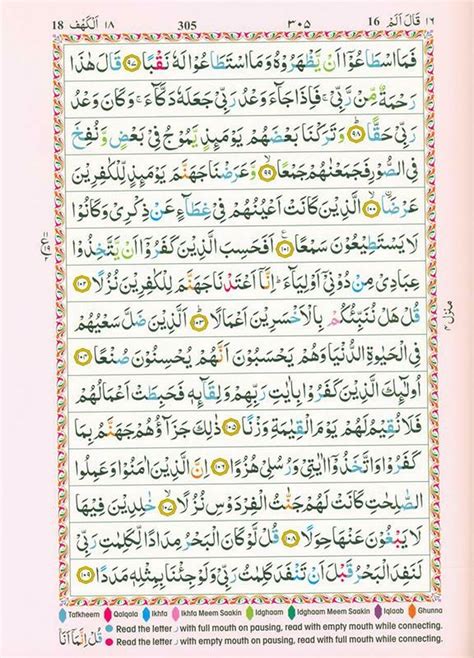 18 اَلْكَهْف ١٨ 305 ٣٠٥ 16 قَالَ اَلَمْ ١٦
فَمَا اسْطَاعُوْۤا اَنْ يَّظْهَرُوْهُ وَمَا اسْتَطَاعُوْا لَهٗ نَقْبًا ۝٩٧ قَالَ هٰذَا
رَحْمَةٌ مِّنْ رَّبِّيْ ۚ فَاِذَا جَآءَ وَعْدُ رَبِّيْ جَعَلَهٗ دَكَّآءَ ۚ وَكَانَ وَعْدُ
رَبِّيْ حَقًّا ۝٩٨ وَتَرَكْنَا بَعْضَهُمْ يَوْمَىِٕذٍ يَّمُوْجُ فِيْ بَعْضٍ وَّنُفِخَ
فِي الصُّوْرِ فَجَمَعْنٰهُمْ جَمْعًا ۝٩٩ وَّعَرَضْنَا جَهَنَّمَ يَوْمَىِٕذٍ لِّلْكٰفِرِيْنَ
عَرْضَا ۝١٠٠ الَّذِيْنَ كَانَتْ اَعْيُنُهُمْ فِيْ غِطَآءٍ عَنْ ذِكْرِيْ وَكَانُوْا
لَا يَسْتَطِيْعُوْنَ سَمْعًا ۝١٠١ اَفَحَسِبَ الَّذِيْنَ كَفَرُوْۤا اَنْ يَّتَّخِذُوْا
عِبَادِيْ مِنْ دُوْنِيْۤ اَوْلِيَآءَ ؕ اِنَّاۤ اَعْتَدْنَا جَهَنَّمَ لِلْكٰفِرِيْنَ نُزُلًا ۝١٠٢
قُلْ هَلْ نُنَبِّئُكُمْ بِالْاَخْسَرِيْنَ اَعْمَالًا ۝١٠٣ اَلَّذِيْنَ ضَلَّ سَعْيُهُمْ
فِي الْحَيٰوةِ الدُّنْيَا وَهُمْ يَحْسَبُوْنَ اَنَّهُمْ يُحْسِنُوْنَ صُنْعًا ۝١٠٤
اُولٰٓىِٕكَ الَّذِيْنَ كَفَرُوْا بِاٰيٰتِ رَبِّهِمْ وَلِقَآىِٕهٖ فَحَبِطَتْ اَعْمَالُهُمْ
فَلَا نُقِيْمُ لَهُمْ يَوْمَ الْقِيٰمَةِ وَزْنًا ۝١٠٥ ذٰلِكَ جَزَآؤُهُمْ جَهَنَّمُ بِمَا
كَفَرُوْا وَاتَّخَذُوْۤا اٰيٰتِيْ وَرُسُلِيْ هُزُوًا ۝١٠٦ اِنَّ الَّذِيْنَ اٰمَنُوْا وَعَمِلُوا
الصّٰلِحٰتِ كَانَتْ لَهُمْ جَنّٰتُ الْفِرْدَوْسِ نُزُلًا ۝١٠٧ خٰلِدِيْنَ فِيْهَا
لَا يَبْغُوْنَ عَنْهَا حِوَلًا ۝١٠٨ قُلْ لَّوْ كَانَ الْبَحْرُ مِدَادًا لِّكَلِمٰتِ رَبِّيْ
لَنَفِدَ الْبَحْرُ قَبْلَ اَنْ تَنْفَدَ كَلِمٰتُ رَبِّيْ وَلَوْ جِئْنَا بِمِثْلِهٖ مَدَدًا ۝١٠٩
منزل ٤
Tafkheem Qalqala Ikhfa Ikhfa Meem Saakin Idghaam Idghaam Meem Saakin Iqlaab Ghunna
قُلْ اِنَّمَاۤ اَنَا
Read the letter ر with full mouth on pausing, read with empty mouth while connecting.
Read the letter ر with empty mouth on pausing, read with full mouth while connecting.